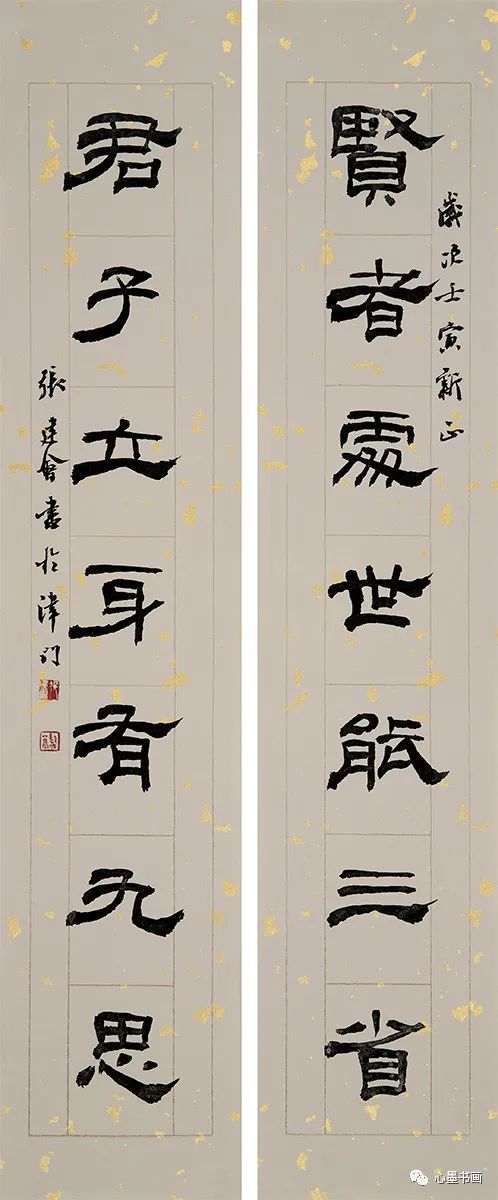 賢者處世能三省
歲次壬寅新正
君子立身有九思
張建會書於津門
心墨书画